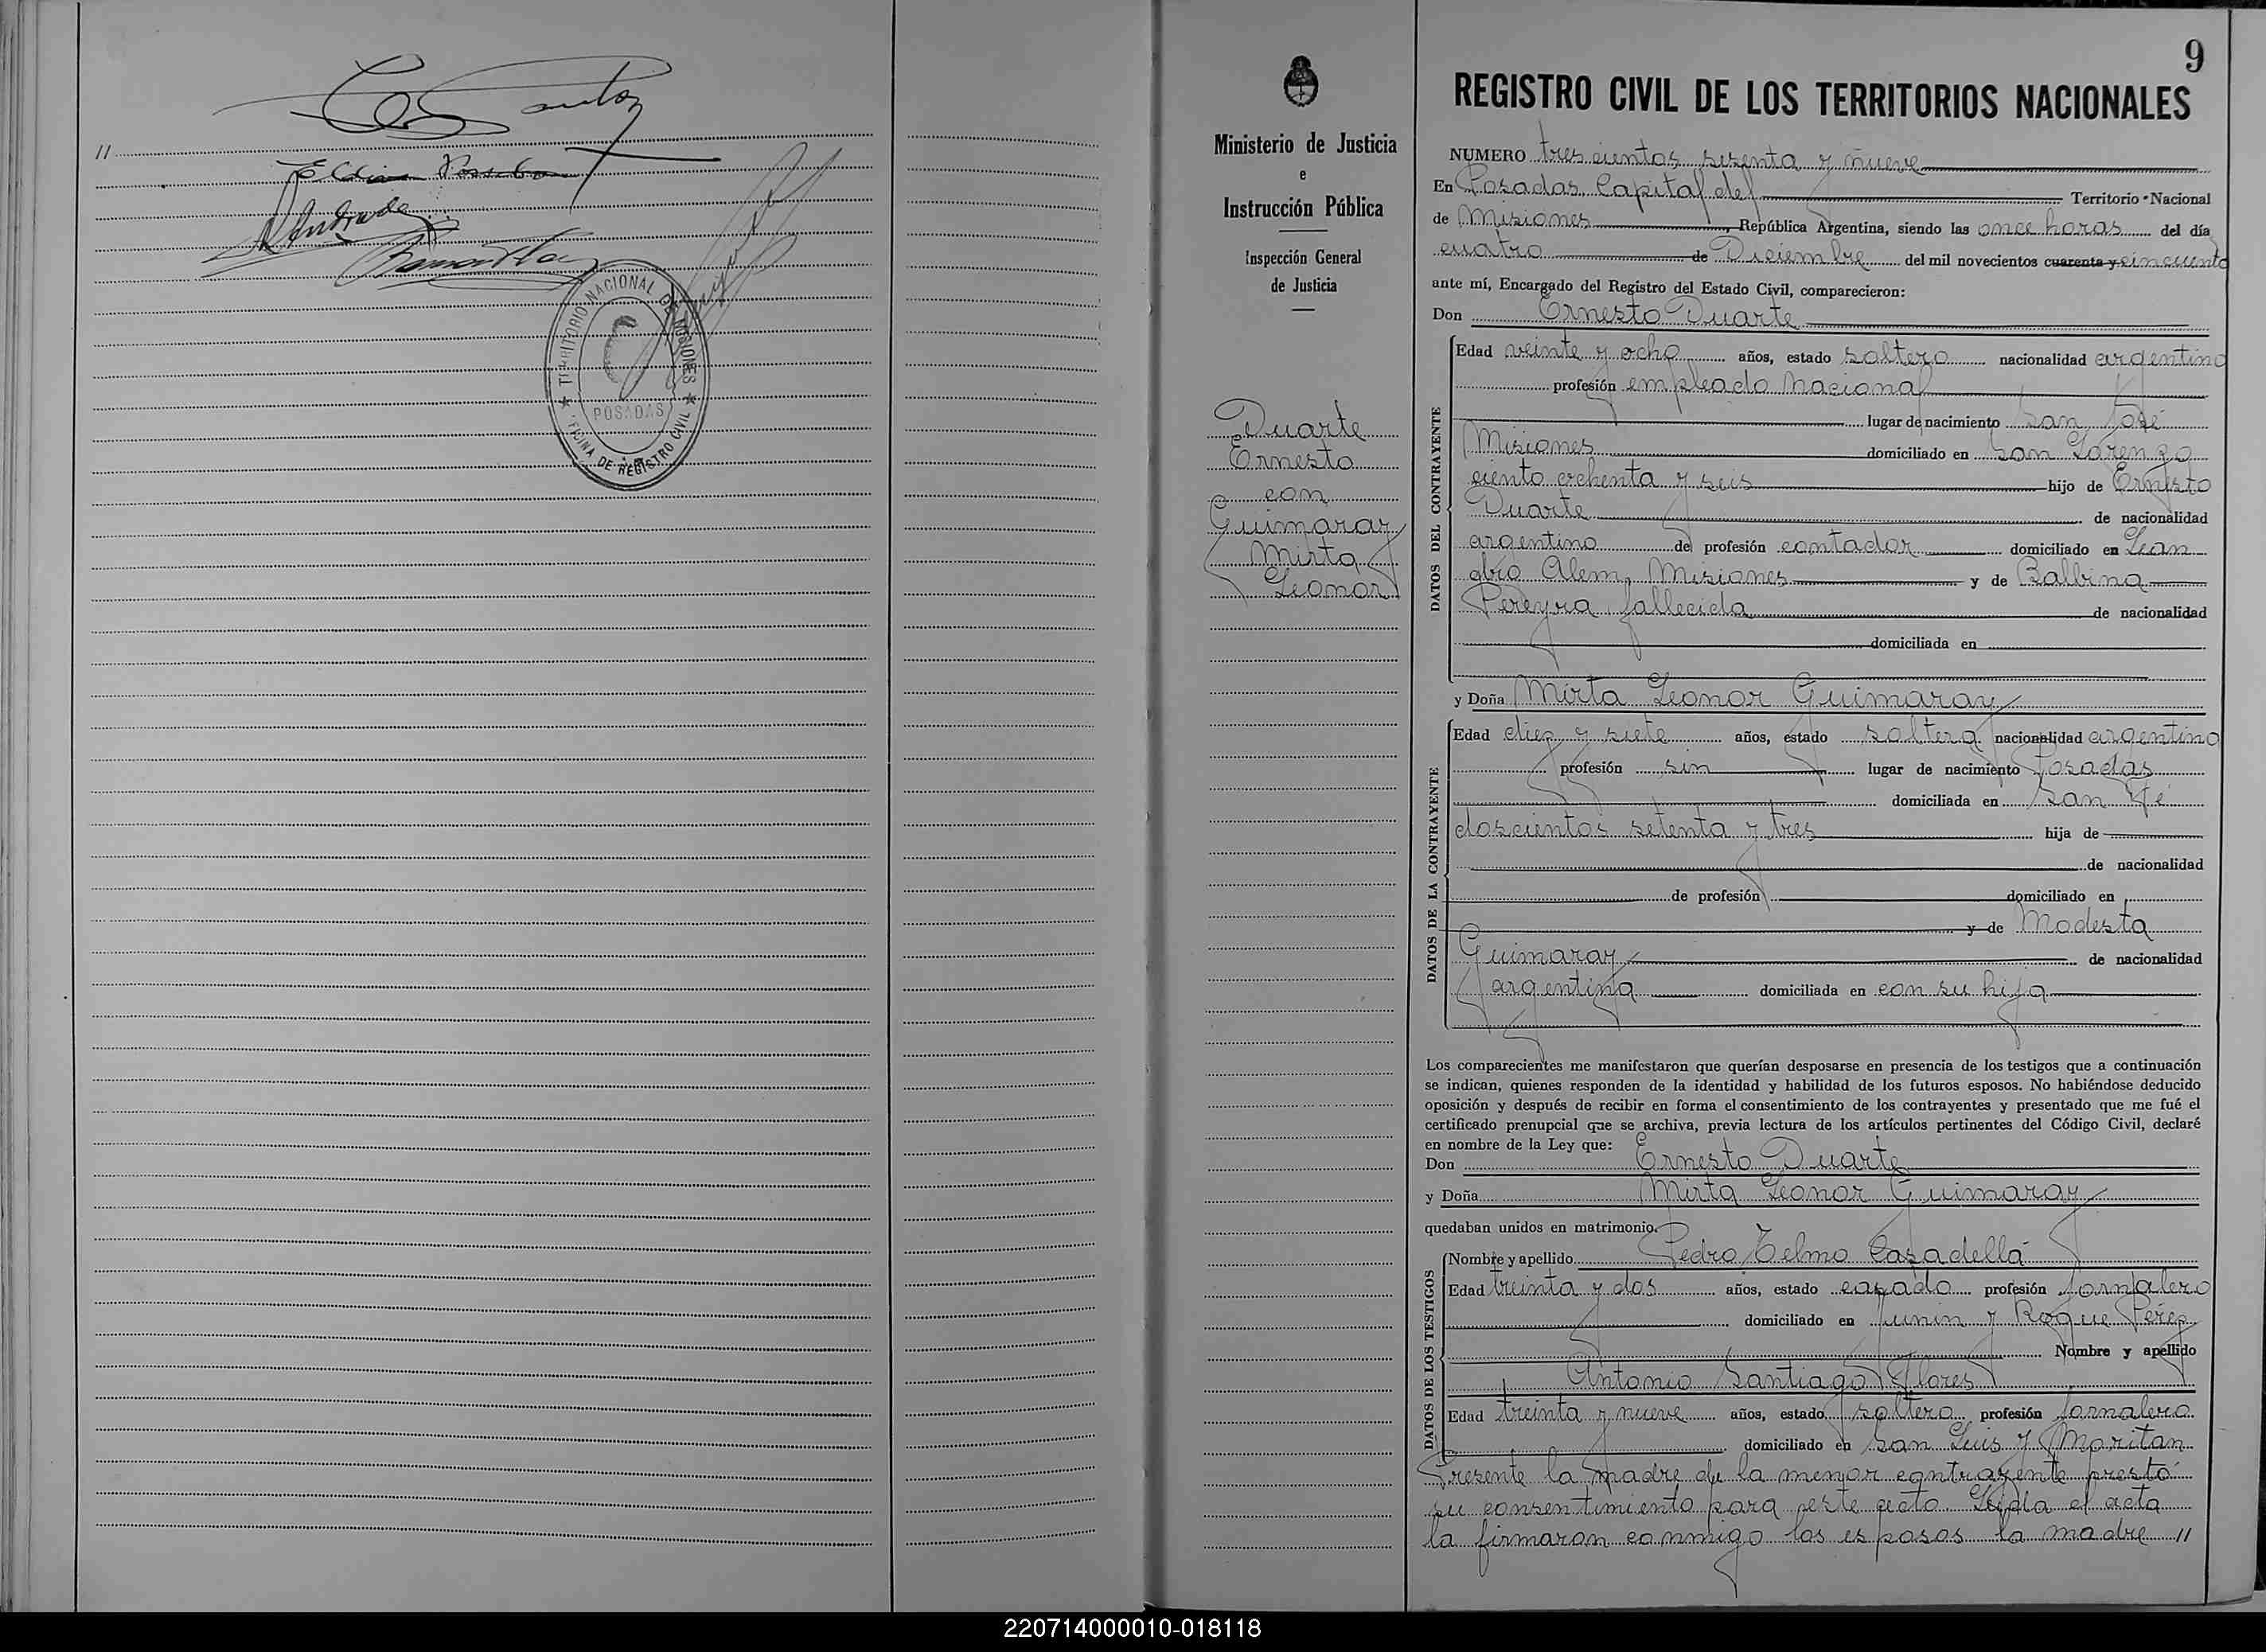 //
TERRITORIO NACIONAL DE MISIONES
POSADAS
OFICINA DE REGISTRO CIVIL
Ministerio de Justicia
e
Instrucción Pública
Inspección General
de Justicia
Duarte
Ernesto
con
Guimaray
Mirta
Leonor
9
REGISTRO CIVIL DE LOS TERRITORIOS NACIONALES
NUMERO trescientos sesenta y nueve
En Posadas Capital del Territorio Nacional
de Misiones, República Argentina, siendo las once horas del día
cuatro de Diciembre del mil novecientos cuarenta y cincuenta
ante mí, Encargado del Registro del Estado Civil, comparecieron:
Don Ernesto Duarte
DATOS DEL CONTRAYENTE
Edad veinte y ocho años, estado soltero nacionalidad argentino
profesión empleado nacional
lugar de nacimiento San José
Misiones domiciliado en San Lorenzo
ciento ochenta y seis hijo de Ernesto
Duarte de nacionalidad
argentino de profesión contador domiciliado en Lean
dro Alem, Misiones y de Balbina
Pereyra fallecida de nacionalidad
domiciliada en
y Doña Mirta Leonor Guimaray
DATOS DE LA CONTRAYENTE
Edad diez y siete años, estado soltera nacionalidad argentina
profesión sin lugar de nacimiento Posadas
domiciliada en Santa Fé
doscientos setenta y tres hija de
de nacionalidad
de profesión domiciliado en
y de Modesta
Guimaray de nacionalidad
argentina domiciliada en con su hija
Los comparecientes me manifestaron que querían desposarse en presencia de los testigos que a continuación
se indican, quienes responden de la identidad y habilidad de los futuros esposos. No habiéndose deducido
oposición y después de recibir en forma el consentimiento de los contrayentes y presentado que me fué el
certificado prenupcial que se archiva, previa lectura de los artículos pertinentes del Código Civil, declaré
en nombre de la Ley que:
Don Ernesto Duarte
y Doña Mirta Leonor Guimaray
quedaban unidos en matrimonio.
DATOS DE LOS TESTIGOS
Nombre y apellido Pedro Telmo Casadellá
Edad treinta y dos años, estado casado profesión jornalero
domiciliado en Junin y Roque Pérez
Nombre y apellido
Antonio Santiago Flores
Edad treinta y nueve años, estado soltero profesión jornalero
domiciliado en San Luis y Moritan
Presente la madre de la menor contrayente prestó
su consentimiento para este acto. Leída el acta
la firmaron conmigo los esposos la madre //
220714000010-018118